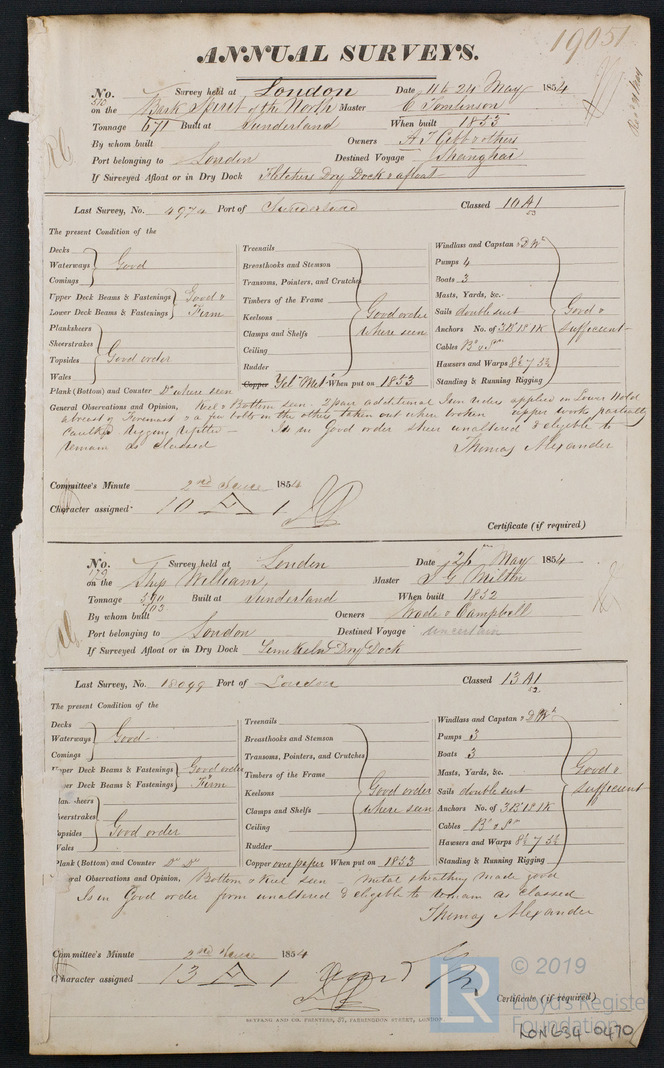 19051
ANNUAL SURVEYS.
No. 510 Survey held at London Date 24 May 1854
on the Bark Spirit of the North Master C Tomlinson
Tonnage 671 Built at Sunderland When built 1853
By whom built Owners A J Gibb & others
Port belonging to London Destined Voyage Shanghai
If Surveyed Afloat or in Dry Dock Fletchers Dry Dock & afloat
Last Survey, No. 4974 Port of Sunderland Classed 10 A1
53
The present Condition of the
Decks
Waterways Good
Comings
Upper Deck Beams & Fastenings Good &
Lower Deck Beams & Fastenings Firm
Planksheers
Sheerstrakes
Topsides Good order
Wales
Plank (Bottom) and Counter Do where seen
Treenails
Breasthooks and Stemson
Transoms, Pointers, and Crutches
Timbers of the Frame
Keelsons Good order
Clamps and Shelfs where seen
Ceiling
Rudder
Copper Yel Met When put on 1853
Windlass and Capstan
Pumps 4
Boats 3
Masts, Yards, &c.
Sails double suit Good &
Anchors No. of 3B 1S 1K sufficient
Cables
Hausers and Warps 8½ 7 5½
Standing & Running Rigging
General Observations and Opinion, Keel & Bottom seen. 2 pair additional Iron riders applied in Lower Hold
abreast of Foremast & a few bolts in the others taken out where broken upper works partially
caulked rigging refitted — Is in Good order sheer unaltered & eligible to
remain as Classed
Thomas Alexander
Committee's Minute 2nd June 1854
Character assigned 10 A 1
Certificate (if required)
No. 129 Survey held at London Date 26 May 1854
on the Ship William, Master J G Milth
Tonnage 703 Built at Sunderland When built 1852
By whom built Owners Wade & Campbell
Port belonging to London Destined Voyage uncertain
If Surveyed Afloat or in Dry Dock Limekiln Dry Dock
Last Survey, No. 18099 Port of London Classed 13 A1
52
The present Condition of the
Decks
Waterways Good
Comings
Upper Deck Beams & Fastenings Good order
er Deck Beams & Fastenings Firm
lanksheers
heerstrakes
opsides Good order
Vales
Plank (Bottom) and Counter Do Do
Treenails
Breasthooks and Stemson
Transoms, Pointers, and Crutches
Timbers of the Frame
Keelsons Good order
Clamps and Shelfs where seen
Ceiling
Rudder
Copper over paper When put on 1853
Windlass and Capstan
Pumps 3
Boats 3
Masts, Yards, &c. Good &
Sails double suit sufficient
Anchors No. of 3B 1S 1K
Cables
Hausers and Warps 8½ 7 5½
Standing & Running Rigging
ral Observations and Opinion, Bottom & Keel seen — metal sheathing made good
Is in Good order from unaltered & eligible to remain as Classed
Thomas Alexander
Committee's Minute 2nd June 1854
Character assigned 13 A 1
Certificate (if required)
LR
© 2019
Lloyd's Registe
Foundation
LON634-0470